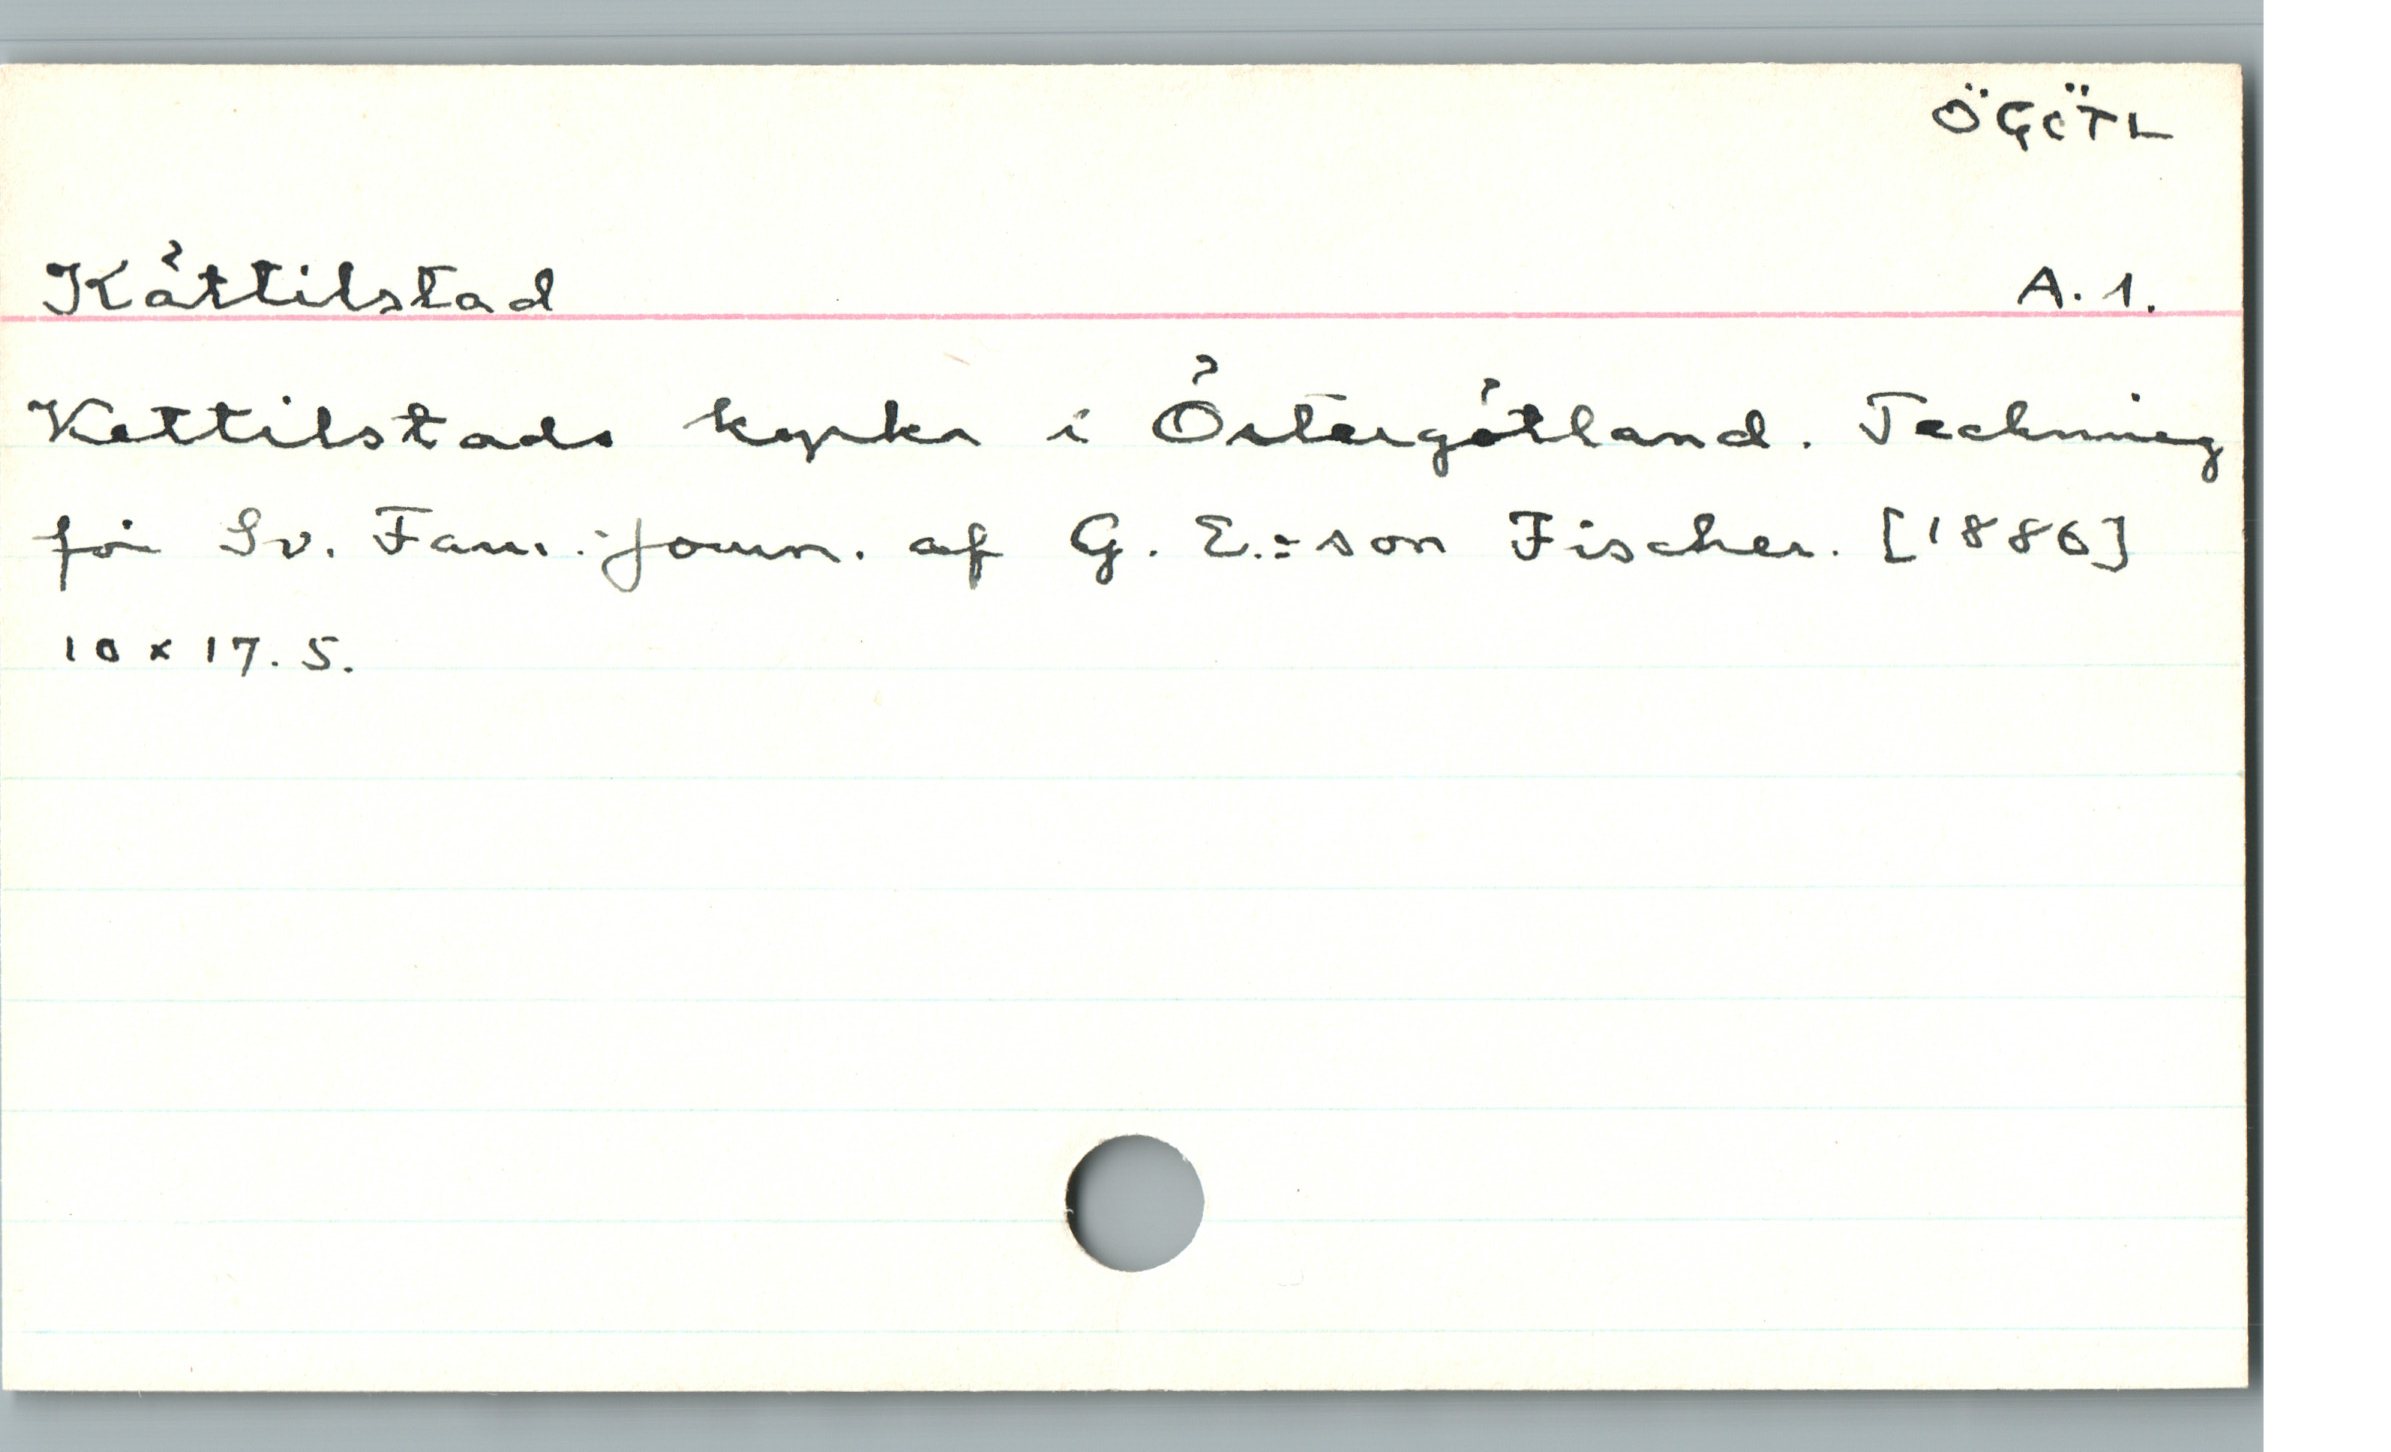 ÖGÖTL
Kättilstad A. 1.
Kettilstads kyrka i Östergötland. Teckning
för Sv. Fam.-Journ. af G. E:son Fischer. [1886]
10 x 17.5.